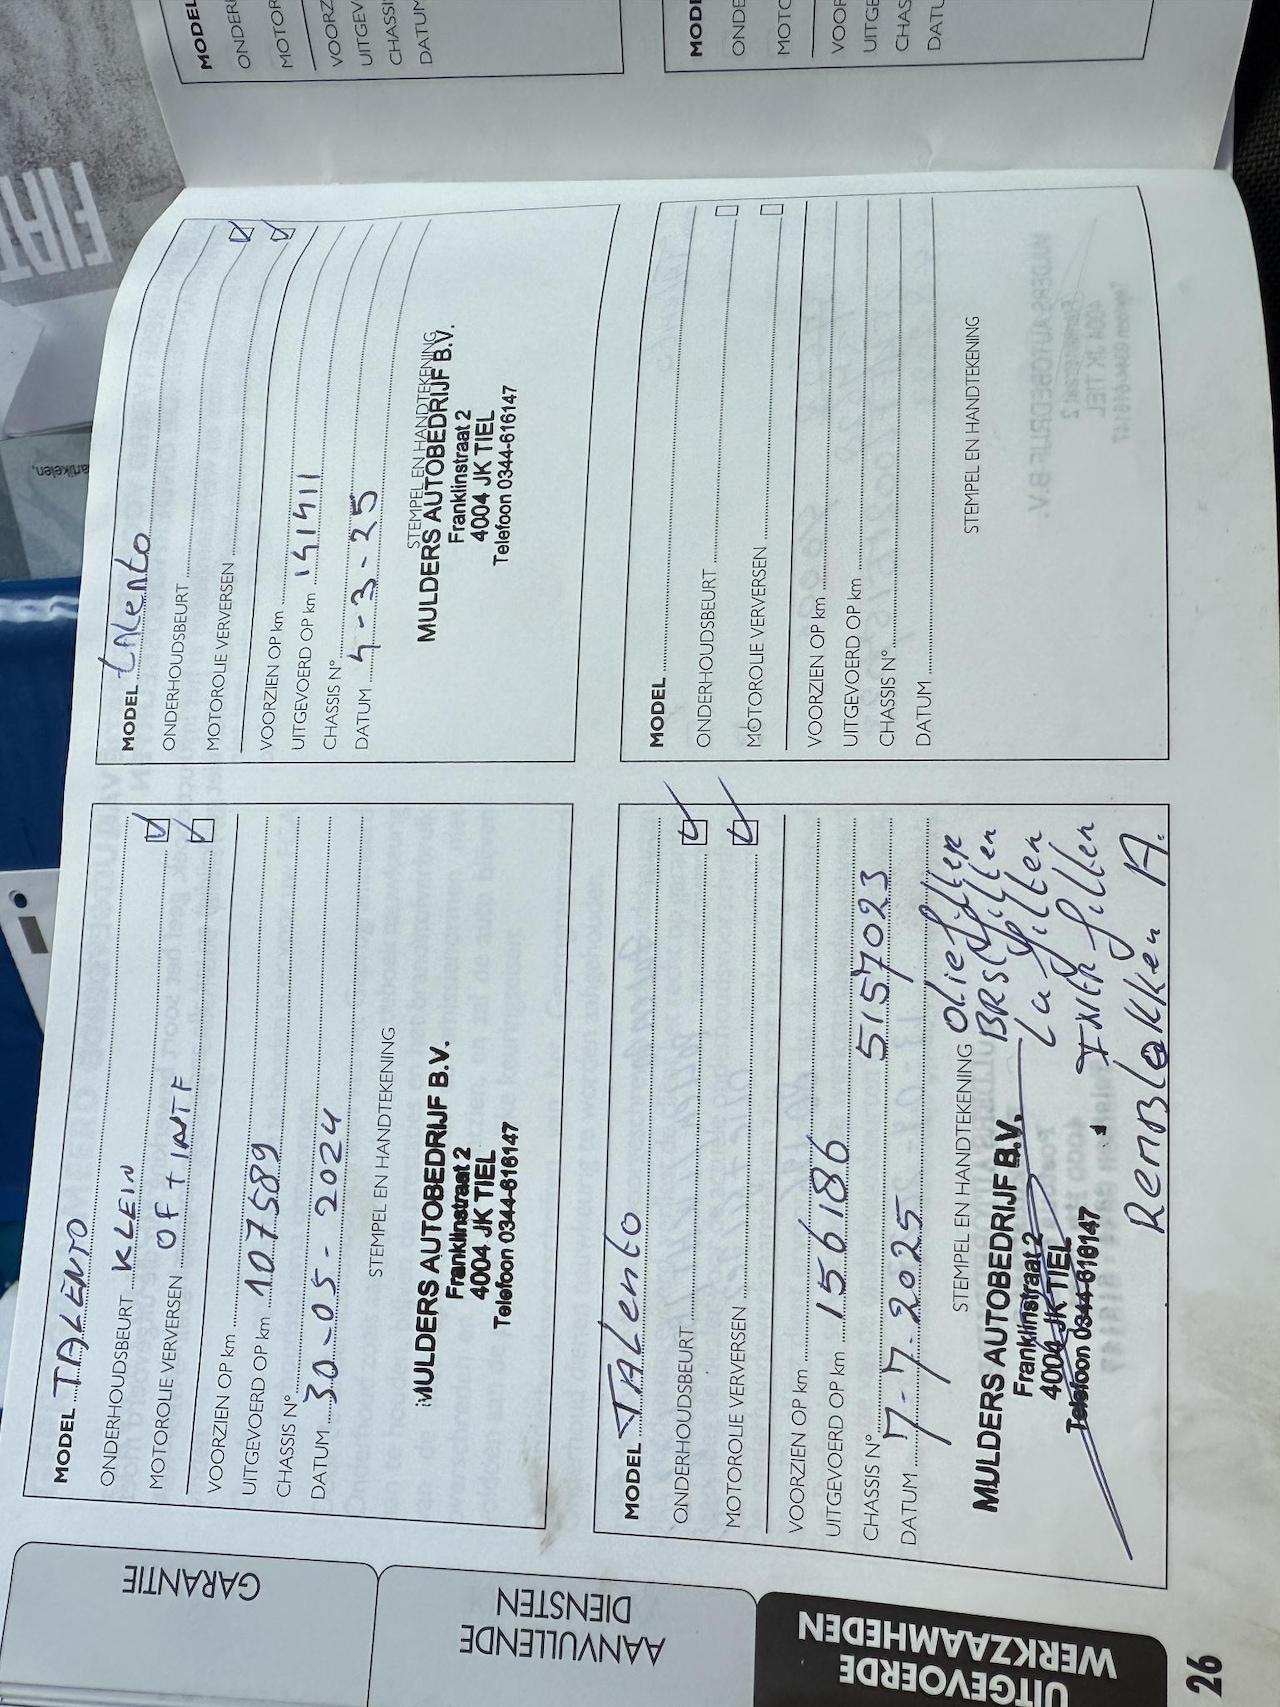 MODEL
ONDER
MOTOR
VOORZ
UITGEV
CHASSI
DATUM
MODEL
ONDE
MOTO
VOOR
UITGE
CHAS
DATU
FIAT
artikelen,
MODEL TALENTO
ONDERHOUDSBEURT KLEIN
MOTOROLIE VERVERSEN OF + INTF
VOORZIEN OP km
UITGEVOERD OP km 107589
CHASSIS N°
DATUM 30-05-2024
STEMPEL EN HANDTEKENING
MULDERS AUTOBEDRIJF B.V.
Franklinstraat 2
4004 JK TIEL
Telefoon 0344-616147
MODEL talento
ONDERHOUDSBEURT
MOTOROLIE VERVERSEN
VOORZIEN OP km
UITGEVOERD OP km 141411
CHASSIS N°
DATUM 4-3-25
STEMPEL EN HANDTEKENING
MULDERS AUTOBEDRIJF B.V.
Franklinstraat 2
4004 JK TIEL
Telefoon 0344-616147
MODEL TALento
ONDERHOUDSBEURT
MOTOROLIE VERVERSEN
VOORZIEN OP km
UITGEVOERD OP km 156186
CHASSIS N° 5157023
DATUM 7-7-2025
STEMPEL EN HANDTEKENING
OLiefilter
filter
filter
RemBlokken A.
MULDERS AUTOBEDRIJF B.V.
Franklinstraat 2
4004 JK TIEL
Telefoon 0344-616147
MODEL
ONDERHOUDSBEURT
MOTOROLIE VERVERSEN
VOORZIEN OP km
UITGEVOERD OP km
CHASSIS N°
DATUM
STEMPEL EN HANDTEKENING
GARANTIE
AANVULLENDE
DIENSTEN
UITGEVOERDE
WERKZAAMHEDEN
26